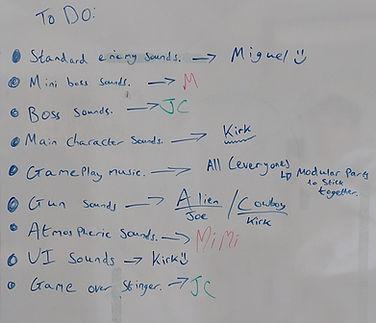 To Do:
Standard enemy sounds. → Miguel
Mini boss sounds. → M
Boss sounds. → JC
Main character sounds. → Kirk
Gameplay music. → All (everyone)
↳ Modular Parts
to stick
together.
Gun sounds → Alien / Cowboy
Joe Kirk
Atmospheric sounds. → MiMi
UI sounds → Kirk
Game over stinger. → JC